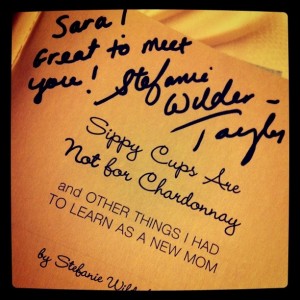 Sara!
Great to meet
you! Stefanie
Wilder-
Taylor
Sippy Cups Are
Not for Chardonnay
and OTHER THINGS I HAD
TO LEARN AS A NEW MOM
by Stefanie Wild